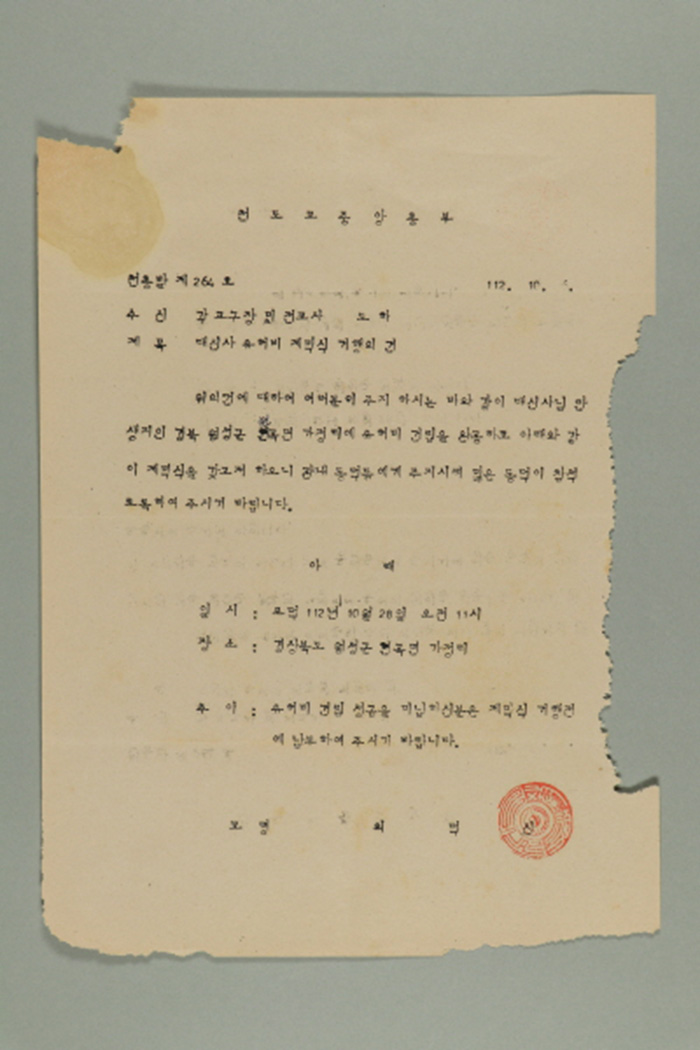 천 도 교 중 앙 총 부
천총발 제 264 호 112. 10.
수 신 각 교구장 및 전교사 도 하
제 목 대신사 유허비 제막식 거행의 건
위의건에 대하여 여러분이 주지 하시는 바와 같이 대신사님 탄
생지인 경북 월성군 현곡면 가정리에 유허비 건립을 완공하고 아래와 같
이 제막식을 갖고저 하오니 관내 동덕들에게 주지시켜 많은 동덕이 참석
토록하여 주시기 바랍니다.
아 래
일 시 : 포덕 112년 10월 28일 오전 11시
장 소 : 경상북도 월성군 현곡면 가정리
추 이 : 유허비 건립 성금을 미납하신분은 제막식 거행전
에 납부하여 주시기 바랍니다.
교 령 최 덕 신